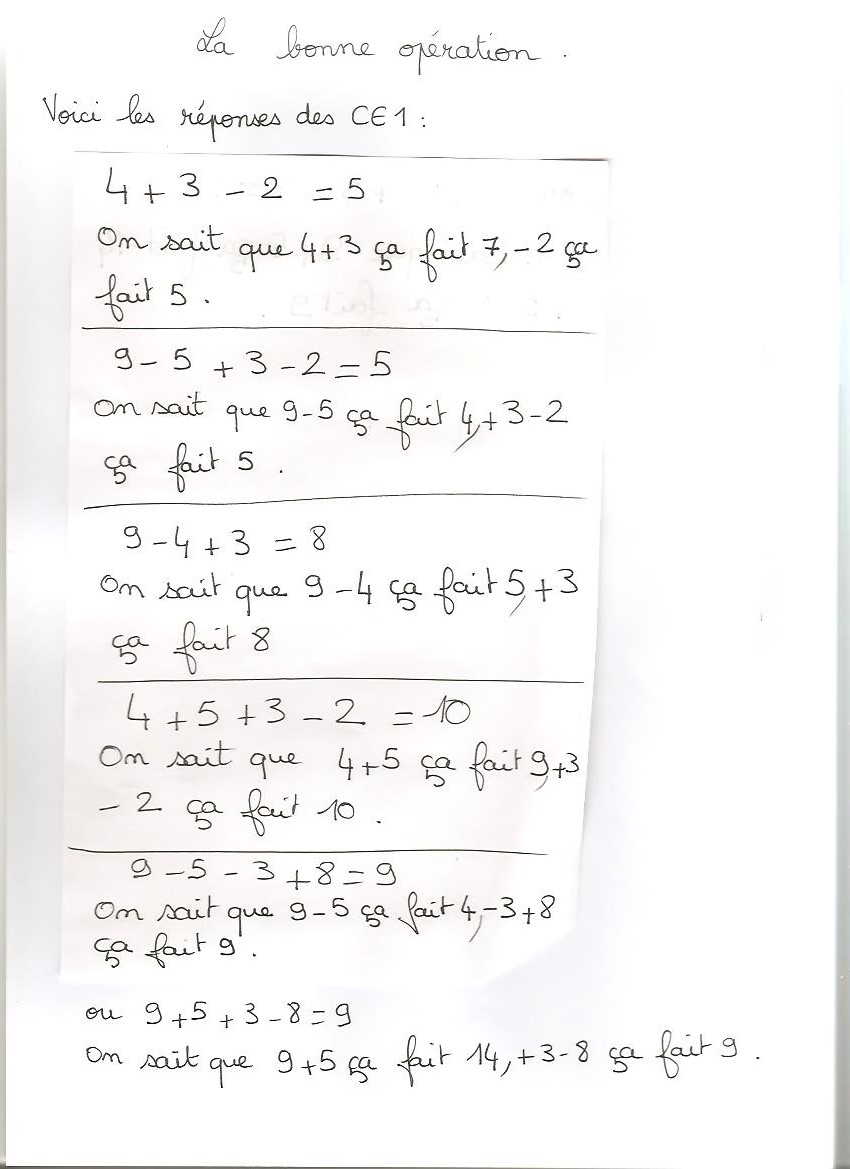 La bonne opération .
Voici les réponses des CE1 :
4 + 3 - 2 = 5
On sait que 4+3 ça fait 7, - 2 ça
fait 5 .
9 - 5 + 3 - 2 = 5
On sait que 9-5 ça fait 4, + 3 - 2
ça fait 5 .
9 - 4 + 3 = 8
On sait que 9 - 4 ça fait 5, + 3
ça fait 8
4 + 5 + 3 - 2 = 10
On sait que 4+5 ça fait 9, +3
- 2 ça fait 10 .
9 - 5 - 3 + 8 = 9
On sait que 9-5 ça fait 4, -3+8
ça fait 9 .
ou 9 + 5 + 3 - 8 = 9
On sait que 9+5 ça fait 14, +3-8 ça fait 9 .